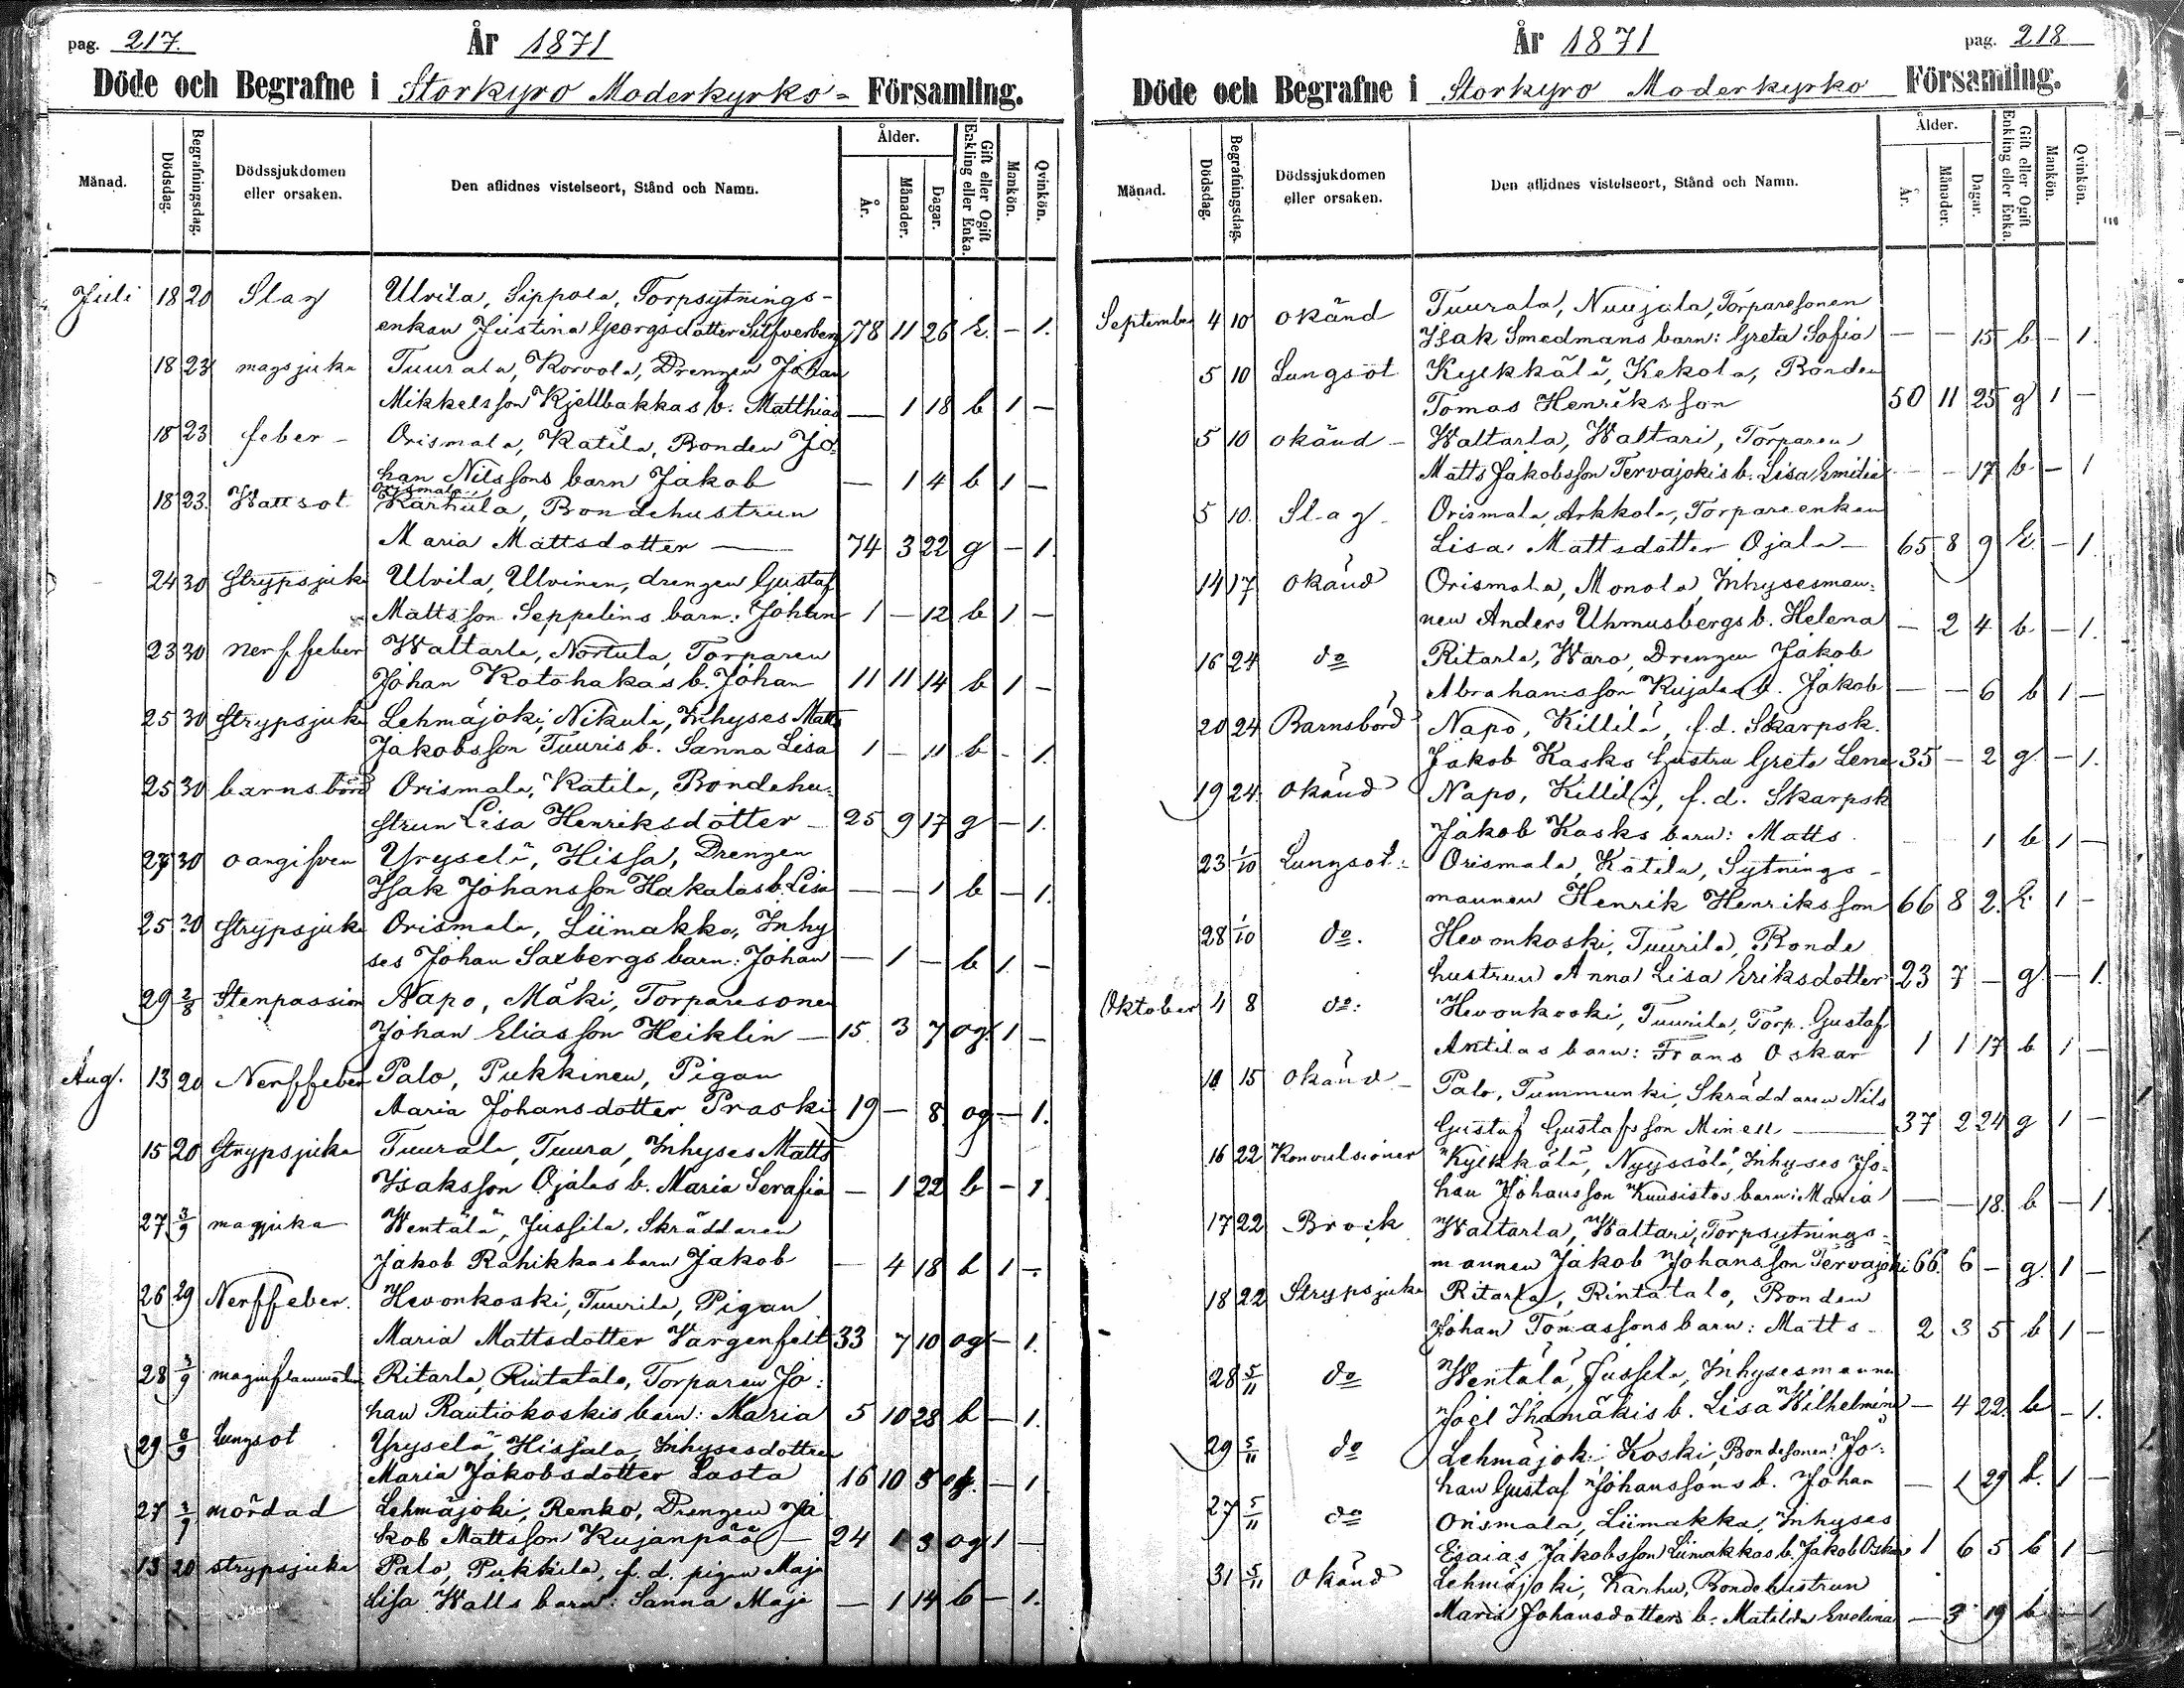 pag. 217.
År 1871
Döde och Begrafne i Storkyro Moderkyrko- Församling.
Månad. Dödsdag. Begrafningsdag. Dödssjukdomen eller orsaken. Den aflidnes vistelseort, Stånd och Namn. Ålder. År. Månader. Dagar. Gift eller Ogift Enkling eller Enka. Mankön. Qvinkön.
Juli 18 20 Slag Ulvila, Sippola, Torpsytnings-
enkan Justina Georgsdotter Silfverberg 78 11 26 E. - 1.
18 23 magsjuka Tuurala, Korvola, Drengen Johan
Mikkelsson Kjellbakkas b. Matthias — 1 18 b 1 -
18 23 feber - Orismala, Katila, Bonden Jo-
han Nilssons barn Jakob — 1 4 b 1 -
Orismala
18 23. Wattsot Karhula, Bondehustrun
Maria Mattsdotter — 74 3 22 g - 1.
24 30 strypsjuka Ulvila, Ulvinen, drengen Gustaf
Mattsson Seppelins barn: Johan 1 - 12 b 1 -
23 30 nerffeber Waltarla, Nortula, Torparen
Johan Kotohakas b. Johan 11 11 14 b 1 -
25 30 strypsjuka Lehmäjoki, Nikula, Inhyses Matts
Jakobsson Tuuris b. Sanna Lisa 1 - 11 b - 1.
25 30 barnsbörd Orismala, Katila, Bondehu-
strun Lisa Henriksdotter - 25 9 17 g - 1.
27 30 oangifven Yryselä, Hissa, Drengen
Isak Johansson Hakalas b. Lisa — - 1 b - 1.
25 30 strypsjuka Orismala, Liimakka, Inhy
ses Johan Saxbergs barn: Johan — 1 - b 1. -
29 2/8 Stenpassion Napo, Mäki, Torparesonen
Johan Eliasson Heiklin — 15 3 7 og. 1 -
Aug. 13 20 Nerffeber Palo, Pukkinen, Pigan
Maria Johansdotter Praski 19 - 8 og - 1.
15 20 strypsjuka Tuurala, Tuura, Inhyses Matts
Isaksson Ojalas b. Maria Serafia — 1 22 b - 1
27 3/9 magsjuka Wentälä, Jussila, Skräddaren
Jakob Rahikkas barn Jakob — 4 18 b 1 -
26 29 Nerffeber. Hevonkoski, Tuurila, Pigan
Maria Mattsdotter Vargenfelt 33 7 10 og - 1.
28 3/9 maginflammation Ritarla, Rintatalo, Torparen Jo:
han Rautiokoskis barn: Maria 5 10 28 b - 1.
29 3/9 Lungsot Yryselä, Hissala, Inhysesdottren
Maria Jakobsdotter Lasta 16 10 5 og. - 1
27 3/9 mördad Lehmäjoki, Renko, Drengen Ja
kob Mattsson Kujanpää — 24 1 3 og 1 -
13 20 strypsjuka Palo, Pukkila, f. d. pigan Maja
Lisa Walls barn: Sanna Maja — 1 14 b - 1.
År 1871
pag. 218
Döde och Begrafne i Storkyro Moderkyrko Församling.
Månad. Dödsdag. Begrafningsdag. Dödssjukdomen eller orsaken. Den aflidnes vistelseort, Stånd och Namn. Ålder. År. Månader. Dagar. Gift eller Ogift Enkling eller Enka. Mankön. Qvinkön.
September 4 10 okänd Tuurala, Nuujala, Torparesonen
Isak Smedmans barn: Greta Sofia — — 15 b - 1.
5 10 Lungsot Kylkkälä, Kekola, Bonden
Tomas Henriksson 50 11 25 g 1 -
5 10 okänd - Waltarla, Waltari, Torparen
Matts Jakobsson Tervajokis b. Lisa Emilia - - 17 b - 1
5 10. Slag - Orismala, Arkkola, Torpareenkan
Lisa Mattsdotter Ojala - 65 8 9 E. - 1.
14 17 okänd Orismala, Monola, Inhysesman-
nen Anders Uhmusbergs b. Helena - 2 4 b - 1.
16 24 do Ritarla, Waro, Drengen Jakob
Abrahamsson Kujalas b. Jakob — - 6 b 1 -
20 24 Barnsbörd Napo, Killilä, f. d. Skarpsk.
Jakob Kasks hustru Greta Lena 35 - 2 g - 1.
19 24. okänd Napo, Killilä, f. d. Skarpsk
Jakob Kasks barn: Matts 1 b 1 -
23 1/10 Lungsot: Orismala, Katila, Sytnings-
mannen Henrik Henriksson 66 8 2. E. 1 -
28 1/10 do. Hevonkoski, Tuurila, Bonde
hustrun Anna Lisa Eriksdotter 23 7 - g - 1.
Oktober 4 8 do: Hevonkoski, Tuurila, Torp. Gustaf
Antilas barn: Frans Oskar 1 1 17 b 1 -
11 15 okänd - Palo, Tummunki, Skräddaren Nils
Gustaf Gustafsson Minell — 37 2 24 g 1 -
16 22 Konvulsioner Kylkkälä, Nyyssölä, Inhyses Jo-
han Johansson Kuusistos barn: Maria — - 18. b - 1.
17 22 Brock Waltarla, Waltari, Torpsytnings-
mannen Jakob Johansson Tervajoki 66. 6 - g. 1 -
18 22 Strypsjuka Ritarla, Rintatalo, Bonden
Johan Tomassons barn: Matts - 2 3 5 b 1 -
28 5/11 do Wentälä, Jussila, Inhysesmannen
Joel Ihamäkis b. Lisa Wilhelmina - 4 22. b - 1.
29 5/11 do Lehmäjoki Koski, Bondesonen Jo-
han Gustaf Johanssons b. Johan — 1 29 b. 1 -
27 5/11 do Orismala, Liimakka, Inhyses
Esaias Jakobsson Liimakkas b. Jakob Oskar 1 6 5 b 1 -
31 5/11 Okänd Lehmäjoki, Karhu, Bondehustrun
Maria Johansdotters b. Matilda Evelina — 3 19 b - 1